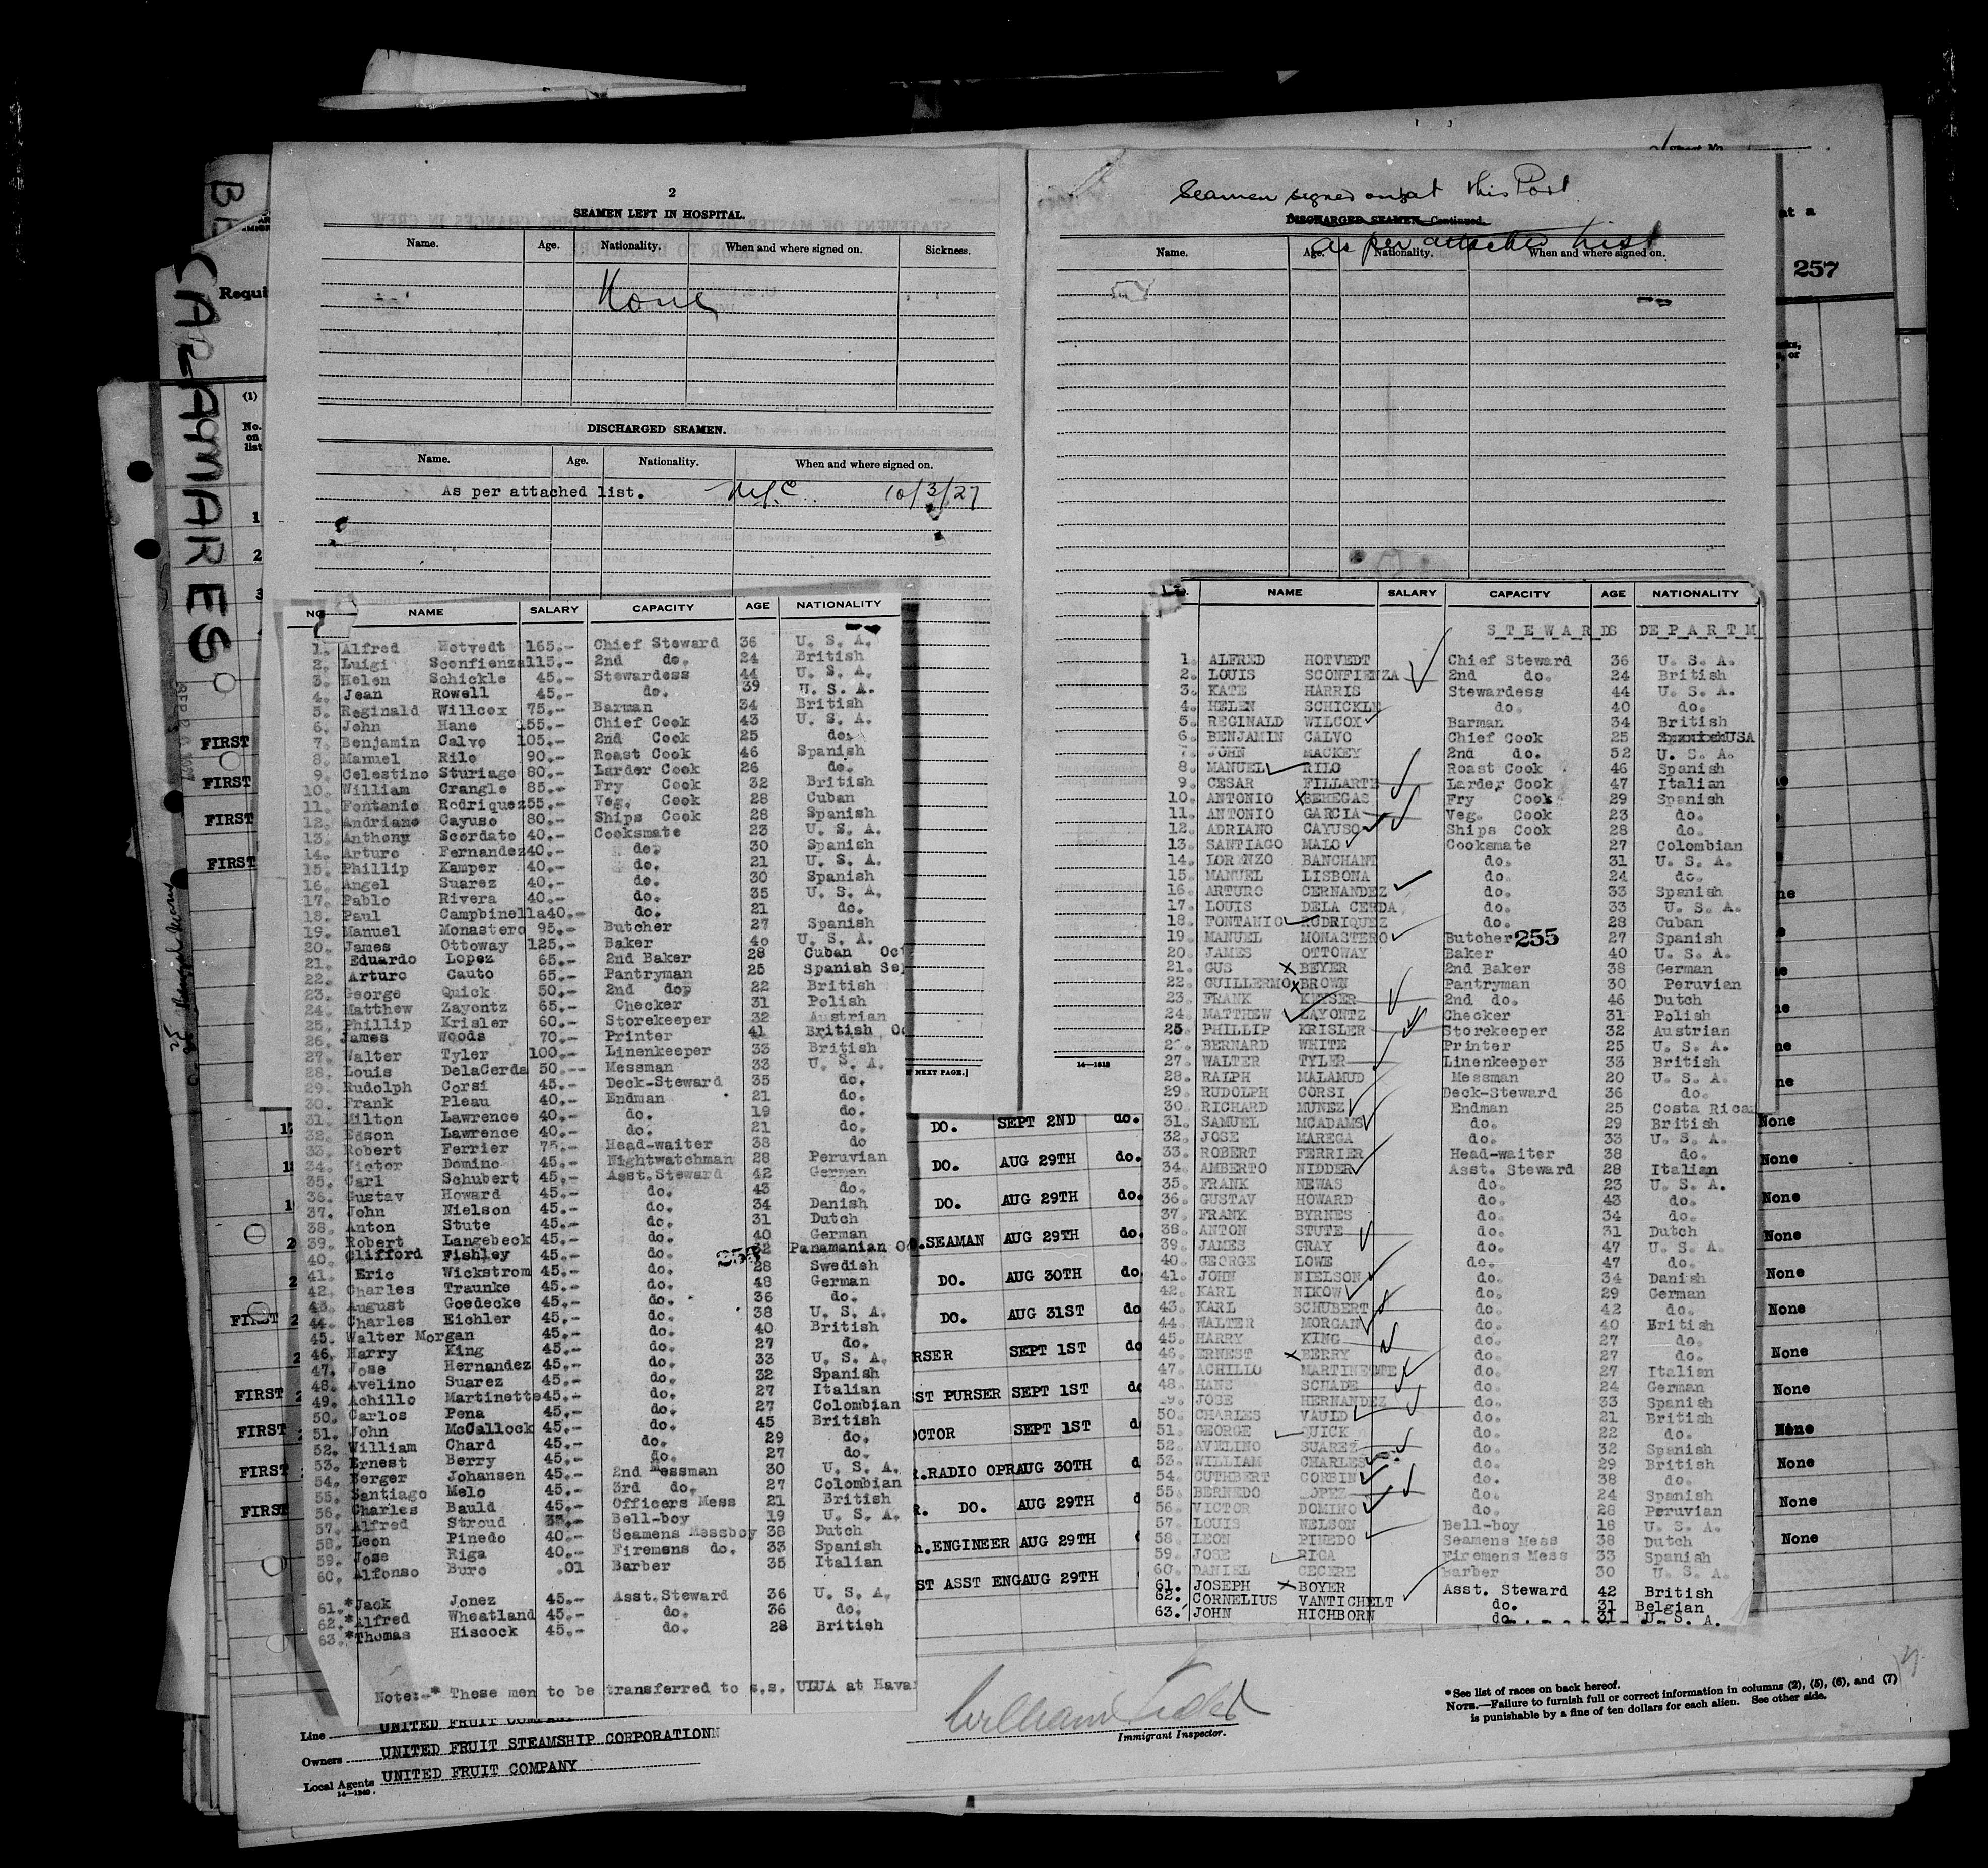 2
SEAMEN LEFT IN HOSPITAL.
Name. Age. Nationality. When and where signed on. Sickness.
None
DISCHARGED SEAMEN.
Name. Age. Nationality. When and where signed on.
As per attached list. N.Y.C. 10/3/27
NO. NAME SALARY CAPACITY AGE NATIONALITY
1. Alfred Hotvedt 165.- Chief Steward 36 U. S. A.
2. Luigi Sconfienza 115.- 2nd do. 24 British
3. Helen Schickle 45.- Stewardess 44 U. S. A.
4. Jean Rowell 45.- do. 39 U. S. A.
5. Reginald Willcox 75.- Barman 34 British
6. John Hane 155.- Chief Cook 43 U. S. A.
7. Benjamin Calvo 105.- 2nd Cook 25 do.
8. Manuel Rilo 90.- Roast Cook 46 Spanish
9. Celestino Sturiago 80.- Larder Cook 26 do.
10. William Crangle 85.- Fry Cook 32 British
11. Fontanio Rodriquez 55.- Veg. Cook 28 Cuban
12. Andriano Cayuso 80.- Ships Cook 28 Spanish
13. Anthony Scordato 40.- Cooksmate 23 U. S. A.
14. Arturo Fernandez 40.- do. 30 Spanish
15. Phillip Kamper 40.- do. 21 U. S. A.
16. Angel Suarez 40.- do. 30 Spanish
17. Pablo Rivera 40.- do. 35 U. S. A.
18. Paul Campbinella 40.- do. 21 do.
19. Manuel Monastero 95.- Butcher 27 Spanish
20. James Ottoway 125.- Baker 40 U. S. A.
21. Eduardo Lopez 65.- 2nd Baker 28 Cuban Oct
22. Arturo Cauto 65.- Pantryman 25 Spanish Sep
23. George Quick 50.- 2nd do. 22 British
24. Matthew Zayontz 65.- Checker 31 Polish
25. Phillip Krisler 60.- Storekeeper 32 Austrian
26. James Woods 70.- Printer 41 British Oc
27. Walter Tyler 100.- Linenkeeper 33 British
28. Louis DelaCerda 50.-- Messman 33 U. S. A.
29. Rudolph Corsi 45.- Deck-Steward 35 do.
30. Frank Pleau 40.- Endman 21 do.
31. Milton Lawrence 40.- do. 19 do.
32. Edson Lawrence 40.- do. 21 do.
33. Robert Ferrier 75.- Head-waiter 38 do
34. Victor Domino 45.- Nightwatchman 28 Peruvian
35. Carl Schubert 45.- Asst.Steward 42 German
36. Gustav Howard 45.- do. 43 do.
37. John Nielson 45.- do. 34 Danish
38. Anton Stute 45.- do. 31 Dutch
39. Robert Langebeck 45.- do. 40 German
40. Clifford Fishley 45.- do. 32 Panamanian Oc
41. Eric Wickstrom 45.- do. 28 Swedish
42. Charles Traunke 45.- do. 48 German
43. August Goedecke 45.- do. 36 do.
44. Charles Eichler 45.- do. 38 U. S. A.
45. Walter Morgan 45.- do. 40 British
46. Harry King 45.- do. 27 do.
47. Jose Hernandez 45.- do. 33 U. S. A.
48. Avelino Suarez 45.- do. 32 Spanish
49. Achillo Martinette 45.- do. 27 Italian
50. Carlos Pena 45.- do. 27 Colombian
51. John McCallock 45.- do. 45 British
52. William Chard 45.- do. 29 do.
53. Ernest Berry 45.- do. 27 do.
54. Berger Johansen 45.- 2nd Messman 30 U. S. A.
55. Santiago Melo 45.- 3rd do. 27 Colombian
56. Charles Bauld 45.- Officers Mess 21 British
57. Alfred Stroud 35.- Bell-boy 19 U. S. A.
58. Leon Pinedo 40.- Seamens Messboy 38 Dutch
59. Jose Riga 40.- Firemens do. 33 Spanish
60. Alfonso Buro .01 Barber 35 Italian
61. *Jack Jonez 45.- Asst.Steward 36 U. S. A.
62. *Alfred Wheatland 45.- do. 36 do.
63. *Thomas Hiscock 45.- do. 28 British
Note:-* These men to be transferred to s.s. ULUA at Hava
Line UNITED FRUIT COMPANY
Owners UNITED FRUIT STEAMSHIP CORPORATION
Local Agents UNITED FRUIT COMPANY
14-1240
Seamen signed on at this Port
DISCHARGED SEAMEN. Continued.
as per attached list
Name. Age. Nationality. When and where signed on.
NAME SALARY CAPACITY AGE NATIONALITY
STEWARDS DEPARTM
1. ALFRED HOTVEDT Chief Steward 36 U. S. A.
2. LOUIS SCONFIENZA 2nd do. 24 British
3. KATE HARRIS Stewardess 44 U. S. A.
4. HELEN SCHICKLE do. 40 do.
5. REGINALD WILCOX Barman 34 British
6. BENJAMIN CALVO Chief Cook 25 USA
7. JOHN MACKEY 2nd do. 52 U. S. A.
8. MANUEL RILO Roast Cook 46 Spanish
9. CESAR FILLARTE Larder Cook 47 Italian
10. ANTONIO BEHEGAS Fry Cook 29 Spanish
11. ANTONIO GARCIA Veg. Cook 23 do.
12. ADRIANO CAYUSO Ships Cook 28 do.
13. SANTIAGO MALO Cooksmate 27 Colombian
14. LORENZO BANCHANT do. 31 U. S. A.
15. MANUEL LISBONA do. 24 do.
16. ARTURO CERNANDEZ do. 33 Spanish
17. LOUIS DELA CERDA do. 33 U. S. A.
18. FONTANIO RODRIQUEZ do. 28 Cuban
19. MANUEL MONASTERO Butcher 255 27 Spanish
20. JAMES OTTOWAY Baker 40 U. S. A.
21. GUS BEYER 2nd Baker 38 German
22. GUILLERMO BROWN Pantryman 30 Peruvian
23. FRANK KEYSER 2nd do. 46 Dutch
24. MATTHEW ZAYONTZ Checker 31 Polish
25. PHILLIP KRISLER Storekeeper 32 Austrian
26. BERNARD WHITE Printer 25 U. S. A.
27. WALTER TYLER Linenkeeper 33 British
28. RALPH MALAMUD Messman 20 U. S. A.
29. RUDOLPH CORSI Deck-Steward 36 do.
30. RICHARD MUNEZ Endman 25 Costa Rica
31. SAMUEL MCADAMS do. 29 British
32. JOSE MAREGA do. 33 U. S. A.
33. ROBERT FERRIER Head-waiter 38 do.
34. AMBERTO NIDDER Asst. Steward 28 Italian
35. FRANK NEWAS do. 23 U. S. A.
36. GUSTAV HOWARD do. 43 do.
37. FRANK BYRNES do. 34 do.
38. ANTON STUTE do. 31 Dutch
39. JAMES GRAY do. 47 U. S. A.
40. GEORGE LOWE do. 47 do.
41. JOHN NIELSON do. 34 Danish
42. KARL NIKOW do. 29 German
43. KARL SCHUBERT do. 42 do.
44. WALTER MORGAN do. 40 British
45. HARRY KING do. 27 do.
46. ERNEST BERRY do. 27 do.
47. ACHILLO MARTINETTE do. 27 Italian
48. HANS SCHADE do. 24 German
49. JOSE HERNANDEZ do. 33 Spanish
50. CHARLES VAULD do. 21 British
51. GEORGE QUICK do. 22 do.
52. AVELINO SUAREZ do. 32 Spanish
53. WILLIAM CHARLES do. 29 British
54. CUTHBERT CORBIN do. 38 do.
55. BERNEDO LOPEZ do. 24 Spanish
56. VICTOR DOMINO do. 28 Peruvian
57. LOUIS NELSON Bell-boy 18 U. S. A.
58. LEON PINEDO Seamens Mess 38 Dutch
59. JOSE RIGA Firemens Mess 33 Spanish
60. DANIEL CECERE Barber 30 U. S. A.
61. JOSEPH BOYER Asst. Steward 42 British
62. CORNELIUS VANTICHELT do. 31 Belgian
63. JOHN HICHBORN do. 31 U. S. A.
14-1613
NEXT PAGE.]
DO. SEPT 2ND do. None
DO. AUG 29TH do. None
DO. AUG 29TH do. None
SEAMAN AUG 29TH do. None
DO. AUG 30TH do None
DO. AUG 31ST do None
RSER SEPT 1ST do None
ST PURSER SEPT 1ST None
OCTOR SEPT 1ST None
R.RADIO OPR AUG 30TH None
R. DO. AUG 29TH None
ENGINEER AUG 29TH None
ST ASST ENG AUG 29TH
Immigrant Inspector.
*See list of races on back hereof.
NOTE.—Failure to furnish full or correct information in columns (2), (5), (6), and (7)
is punishable by a fine of ten dollars for each alien. See other side.
257
at a
CALAMARES
Requi
(1)
No. on list
FIRST
FIRST
FIRST
FIRST
FIRST
FIRST
FIRST
FIRST
FIRST